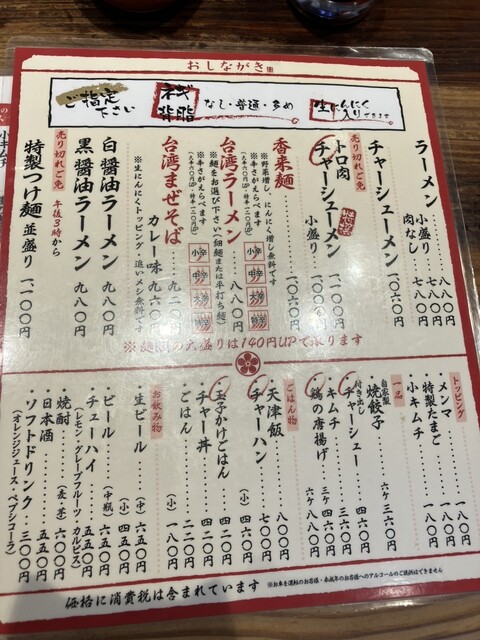 おしながき
ご指定下さい
ネギ
背脂
なし・普通・多め
生にんにく入りできます
ラーメン 八八〇円
小盛り 七八〇円
肉なし 七八〇円
チャーシューメン 一〇八〇円
売り切れご免
トロ肉チャーシューメン 一二〇〇円
小盛り 一〇六〇円
香来麺
※野菜増し、にんにく増し無料です
台湾ラーメン 八八〇円
※麺をお選び下さい(細麺または平打ち麺)
※辛さがえらべます
小辛
中辛
大辛
台湾まぜそば 九二〇円
カレー味 九六〇円
※生にんにくトッピング・追いメシ無料です
白醤油ラーメン 九八〇円
黒醤油ラーメン 九八〇円
売り切れご免 午後5時から
特製つけ麺 並盛り 一二〇〇円
※麺類の大盛りは140円UPで承ります
トッピング
メンマ 一八〇円
特製たまご 一八〇円
小キムチ 一八〇円
一品
自家製 焼餃子 六ケ 三六〇円
付き出しチャーシュー 三六〇円
キムチ 三六〇円
鶏の唐揚げ 三ケ 四六〇円
六ケ 八八〇円
ごはん物
天津飯 八〇〇円
チャーハン 七〇〇円
(小) 四六〇円
玉子かけごはん 四二〇円
チャー丼 四二〇円
ごはん 二二〇円
(小) 一八〇円
お飲み物
生ビール (中) 六五〇円
(小) 四五〇円
ビール (中瓶) 六五〇円
チューハイ 五五〇円
(レモン・グレープフルーツ カルピス)
焼酎 (麦・芋) 六〇〇円
日本酒 五五〇円
ソフトドリンク 三〇〇円
(オレンジジュース・ペプシコーラ)
価格に消費税は含まれています
※お車を運転のお客様・未成年のお客様へのアルコールのご提供はできません